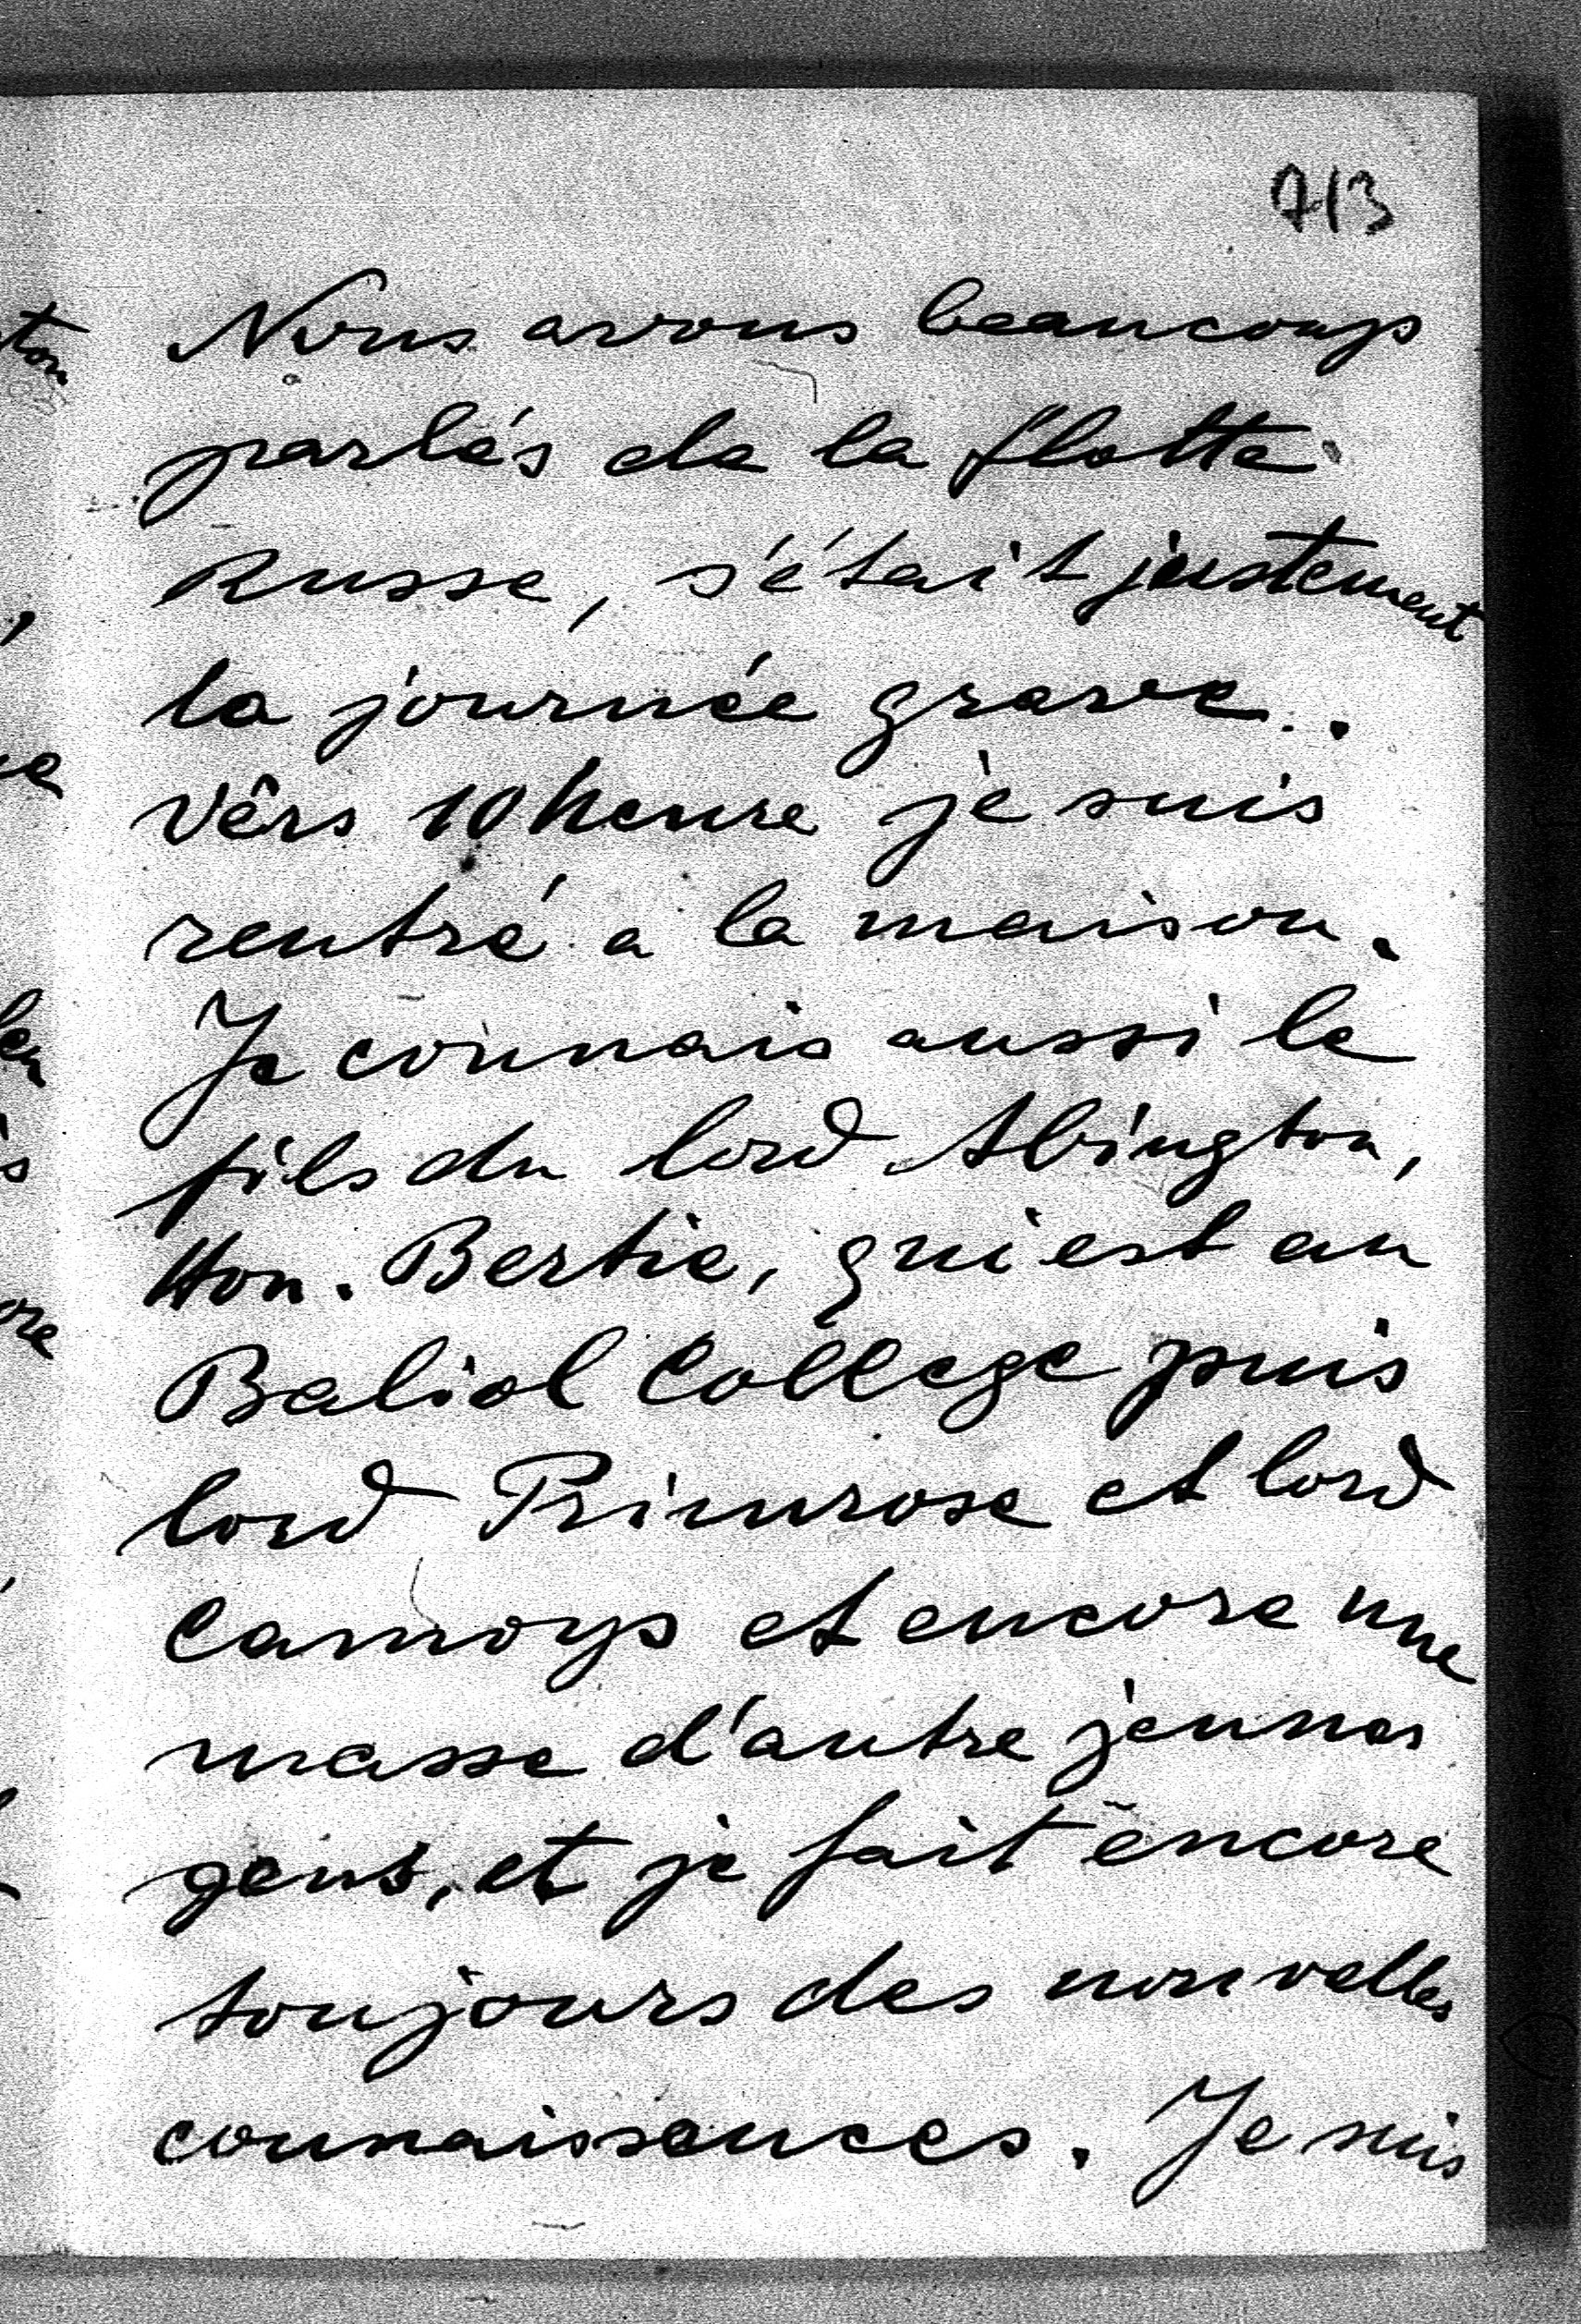 713
Nous avons beaucoup
parlés de la flotte
Russe, s'était justement
la journée grave.
vêrs 10 heure je suis
rentré a la maison.
Je connais aussi le
fils du lord Abington,
Hon. Bertie, qui est au
Baliol College puis
lord Primrose et lord
Camoys et encore une
masse d'autre jeunes
gens, et je fait encore
toujours des nouvelles
connaissences. Je suis